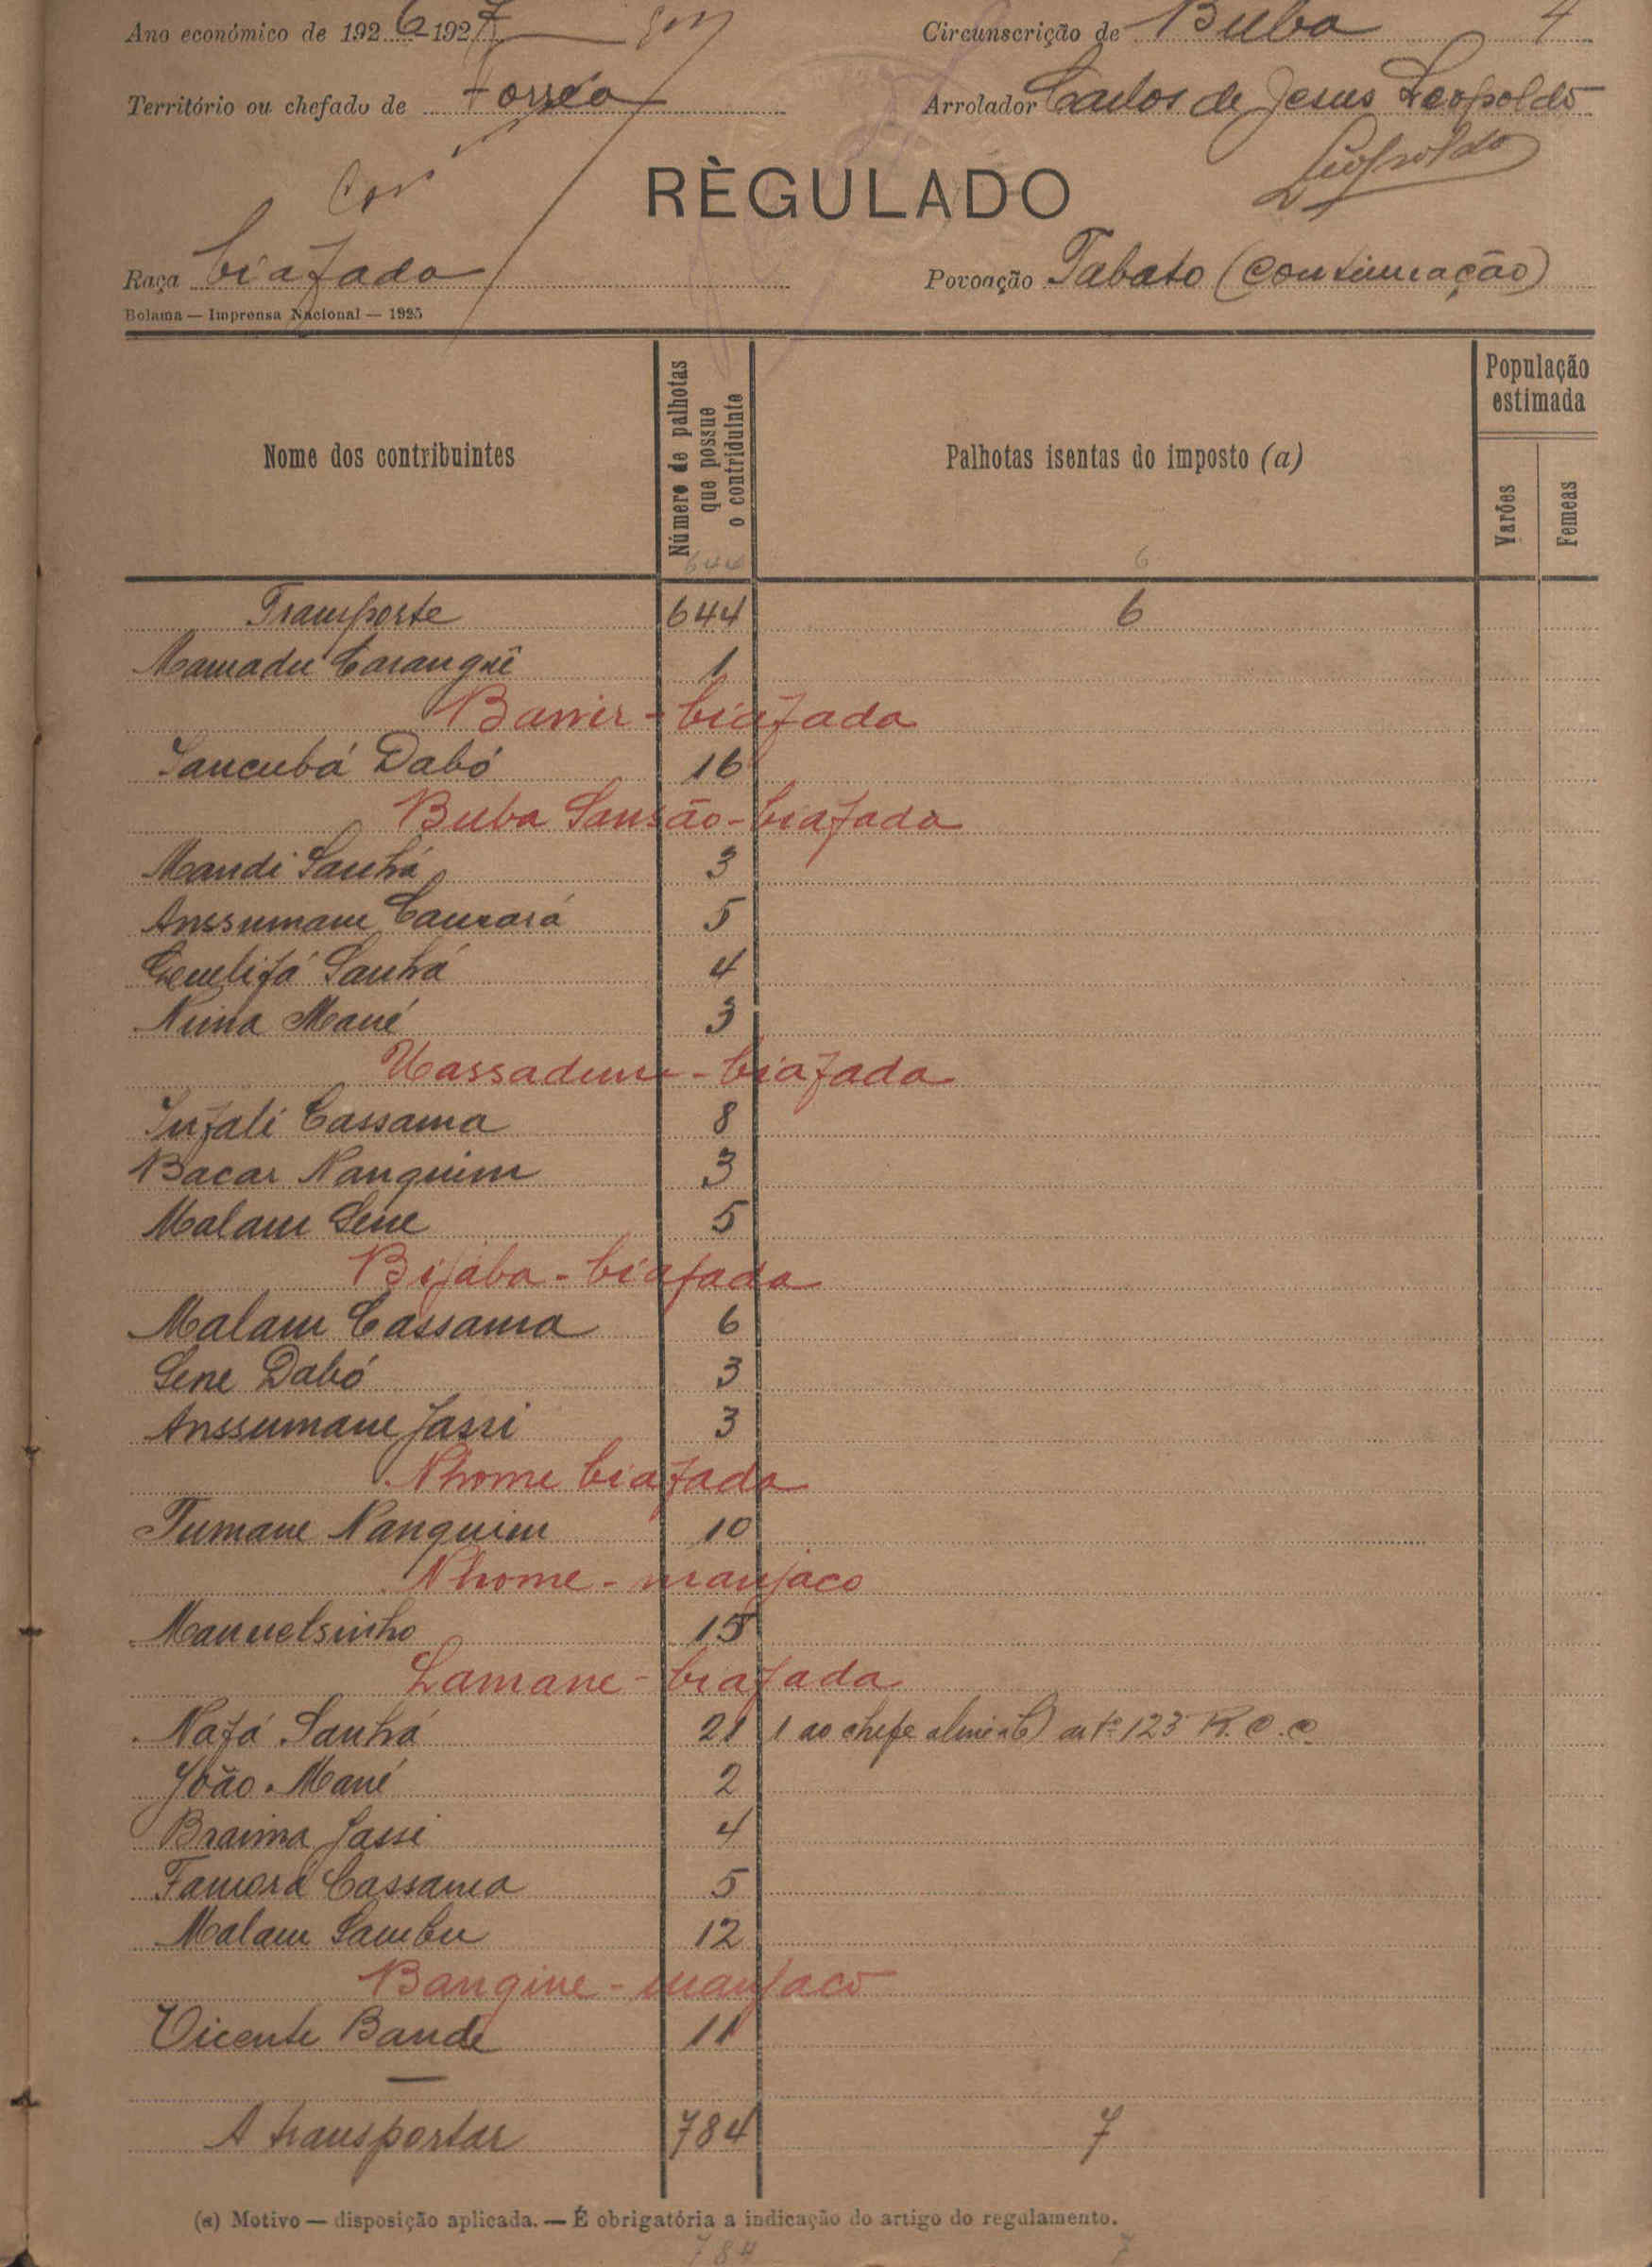 Ano económico de 1926-1927
Circunscrição de Buba 4
Território ou chefado de Forréa
Arrolador Carlos de Jesus Leopoldo
Leopoldo
RÈGULADO
Raça biafada
Povoação Tabato (continuação)
Bolama — Imprensa Nacional — 1925
Nome dos contribuintes
Número de palhotas que possue o contriduinte
Palhotas isentas do imposto (a)
População estimada
Varões
Femeas
644 6
Transporte 644 6
Mamadu Caranguê 1
Banir - biafada
Sancubá Dabó 16
Buba Sansão - biafada
Mandi Sanhá 3
Anssumane Camará 5
Quelifá Sanhá 4
Numa Mané 3
Uassadum - biafada
Infali Cassama 8
Bacar Nanquim 3
Malam Sene 5
Bijaba - biafada
Malam Cassama 6
Sene Dabó 3
Anssumane Jassi 3
Nhome biafada
Tumane Nanquim 10
Nhome - manjaco
Manuelsinho 15
Lamane - biafada
Nafá Sanhá 21 1 ao chefe alinea b) artº 123 R. C. C.
João Mané 2
Braima Jassi 4
Famorá Cassama 5
Malam Sambu 12
Bangine - manjaco
Vicente Bande 11
A transportar 784 7
(a) Motivo — disposição aplicada. — É obrigatória a indicação do artigo do regulamento.
784 7